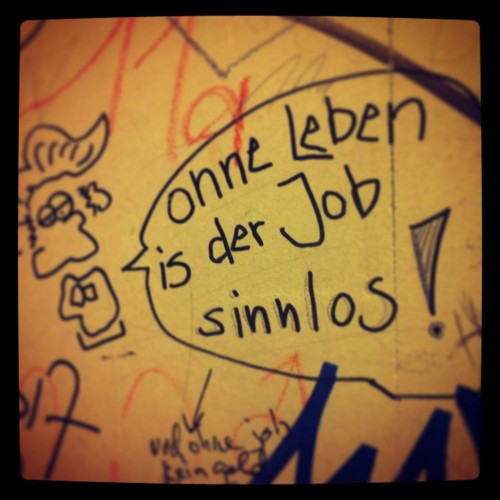 ohne Leben
is der Job
sinnlos!
und ohne job
kein geld